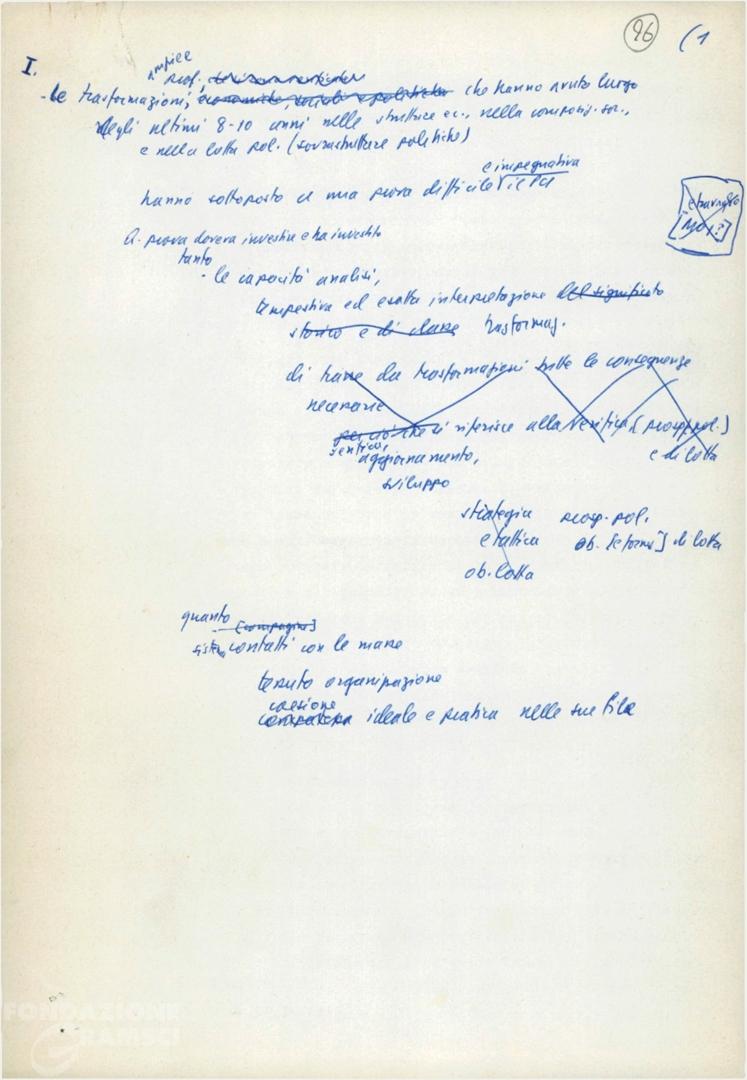 96 (1
I.
ampie e
prof.,
- le trasformazioni, economiche, sociali e politiche che hanno avuto luogo
negli ultimi 8-10 anni nelle strutture ec., nella composiz. soc.,
e nella lotta pol. (sovrastrutture politiche)
e impegnativa
hanno sottoposto a una prova difficile il PCI
e travaglio
Q. prova doveva investire e ha investito
tanto
- le capacità analisi,
tempestiva ed esatta interpretazione del significato
storico e di classe trasformaz.
di trarre da trasformazioni tutte le conseguenze
necessarie
per ciò che si riferisce alla verifica [prosp. pol.]
verifica,
aggiornamento, e di lotta
sviluppo
strategia prosp. pol.
e tattica ob. [e forme] di lotta
ob. lotta
quanto
- [compagine]
sistem. contatti con le masse
tessuto organizzazione
coesione
compattezza ideale e pratica nelle sue file
FONDAZIONE
GRAMSCI